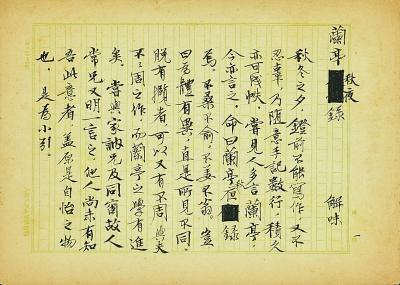 蘭亭秋夜錄
解味
一
秋冬之夕，燈前不能寫作，又不
忍棄，乃隨意手記數行，積久
亦可成帙。嘗見人多言蘭亭，
今亦言之，命曰蘭亭秋夜錄
焉。不桑不俞，不姜不翁。豈
曰為體有異，直是所見不同。
脫有攔者，可以又有不周與夫
不不周之作，而蘭亭之學有進
矣。嘗與家訥兄及同窗故人
常兄又明言之，他人尚未有知
吾此意者，蓋原是自怡之物
也。是為小引。